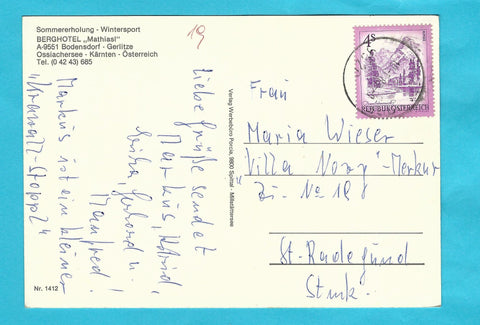 Sommererholung - Wintersport
BERGHOTEL „Mathiasl"
A-9551 Bodensdorf - Gerlitze
Ossiachersee - Kärnten - Österreich
Tel. (0 42 43) 685
19
Liebe Grüße sendet
Markus, Astrid,
Gerhard u.
Manfred!
Markus ist ein kleiner
Nr. 1412
Verlag Werbebüro Porcia, 9800 Spittal - Millstättersee
4S
REPUBLIK ÖSTERREICH
Frau
Maria Wieser
"Villa Merkur
Zi - No 19
St. Radegund
Stmk.